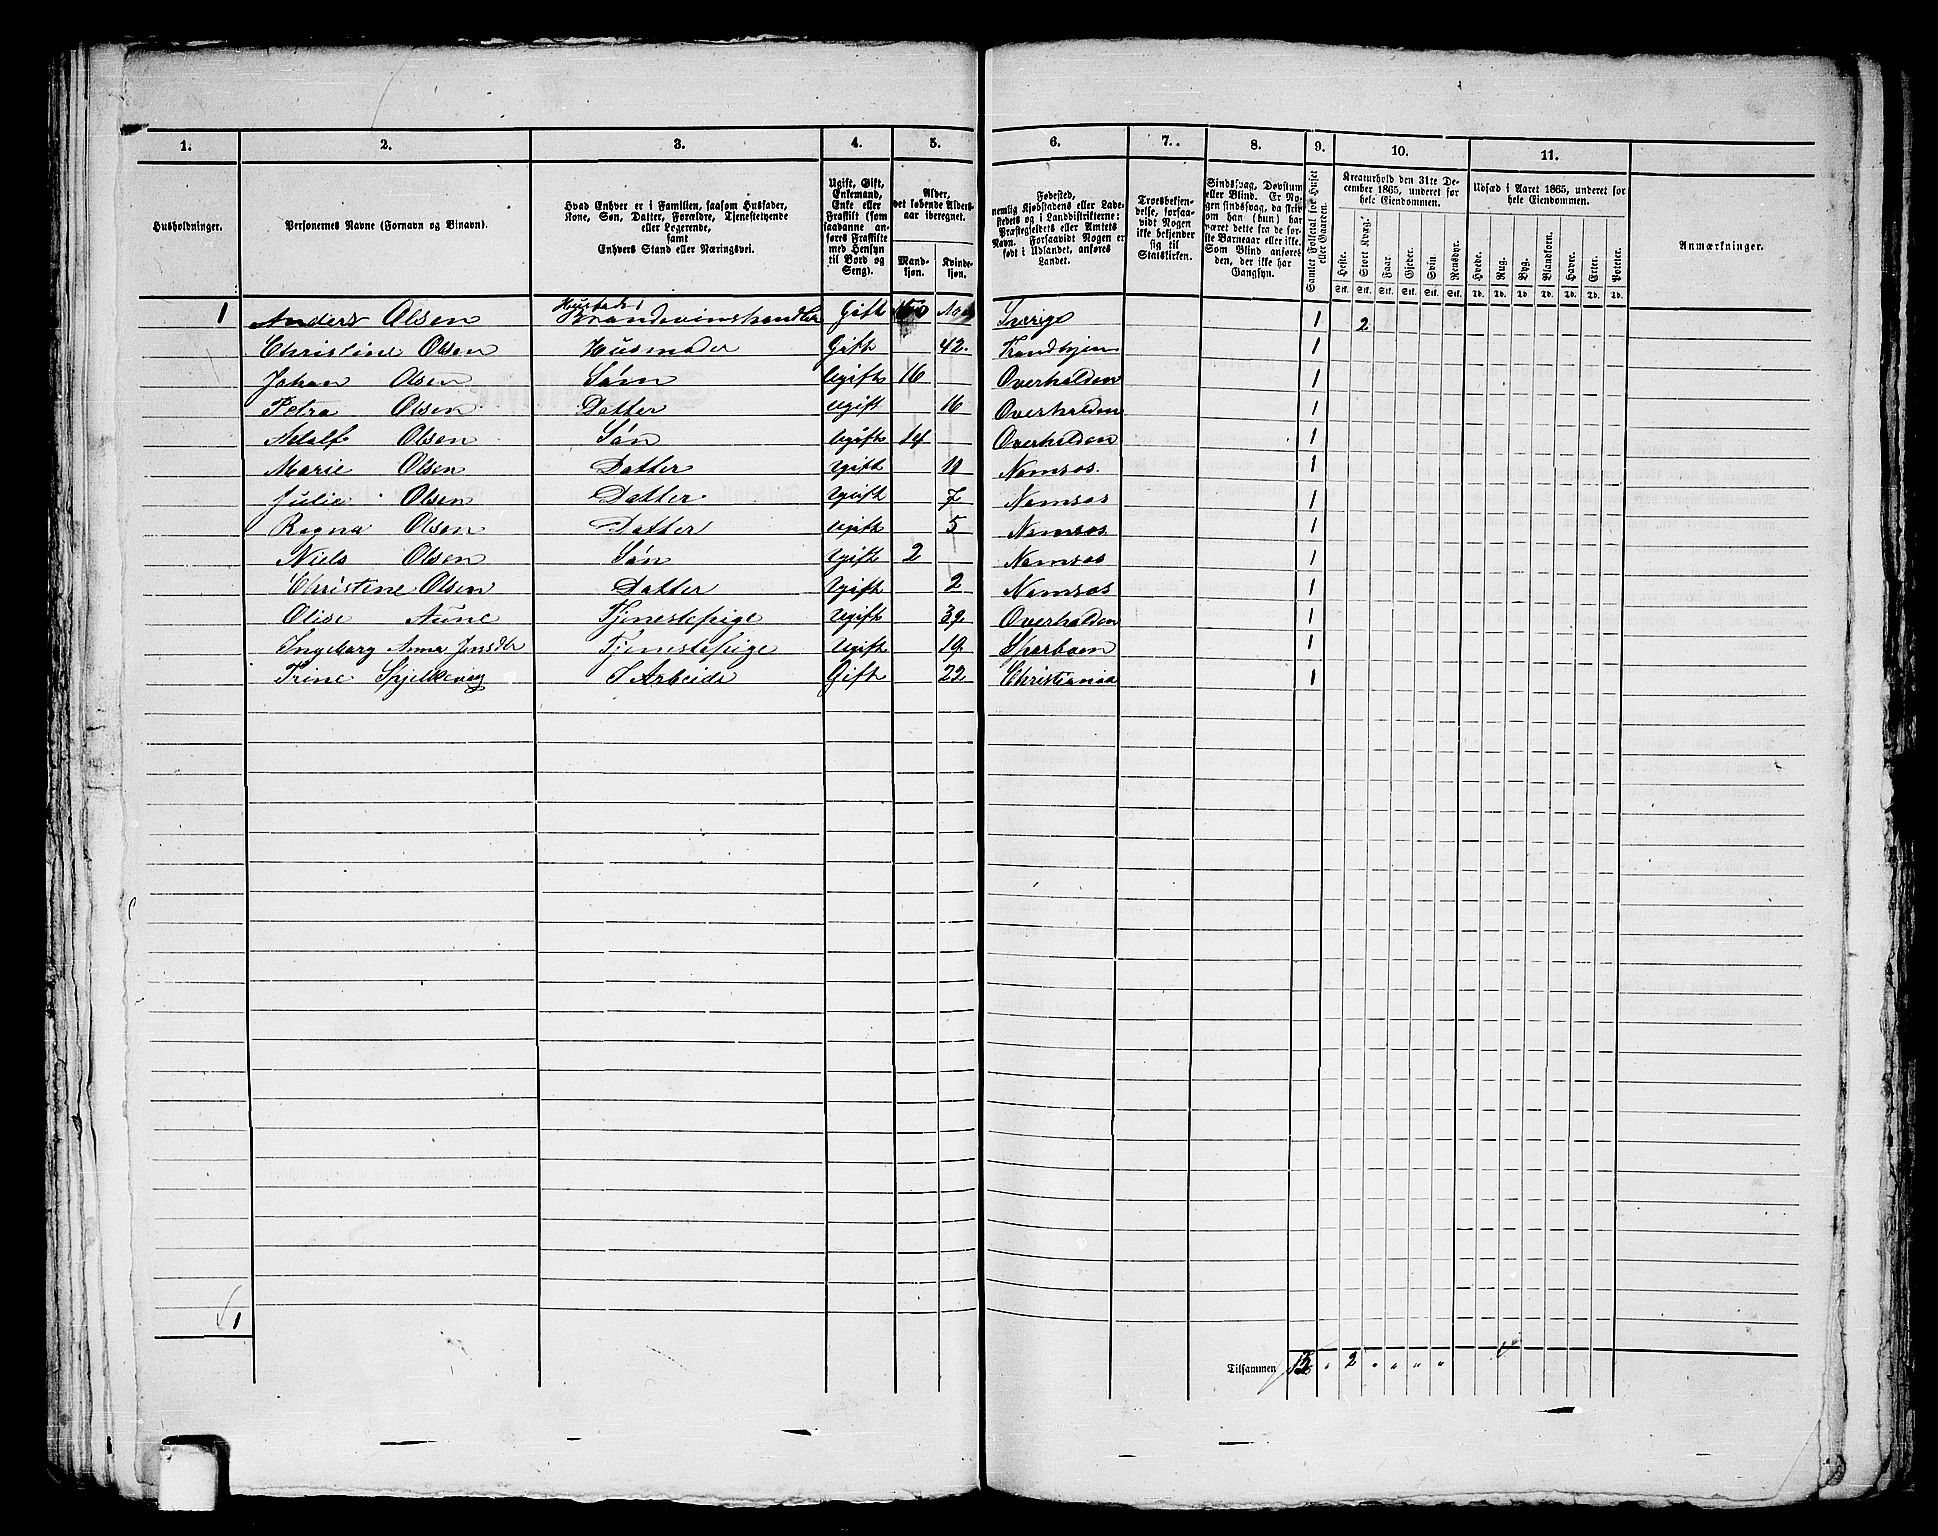 1. 2. 3. 4. 5. 6. 7. 8. 9. 10. 11.
Husholdninger. Personernes Navne (Fornavn og Binavn). Hvad Enhver er i Familien, saasom Husfader, Kone, Søn, Datter, Forældre, Tjenestetyende eller Logerende, samt Enhvers Stand eller Næringsvei. Ugift, Gift, Enkemand, Enke eller Fraskilt (som saadanne anføres Fraskilte med Hensyn til Bord og Seng). Alder, det løbende Aldersaar iberegnet. Mandkjøn. Kvindekjøn. Fødested, nemlig Kjøbstadens eller Ladestedets og i Landdistrikterne: Præstegjeldets eller Amtets Navn. Forsaavidt Nogen er født i Udlandet, anføres Landet. Troesbekjendelse, forsaavidt Nogen ikke bekjender sig til Statskirken. Sindssvag, Døvstum eller Blind. Er Nogen sindssvag, da skrives om han (hun) har været dette fra de første Barneaar eller ikke. Som Blind anføres den, der ikke har Gangsyn. Samlet Folketal for Huset eller Gaarden. Kreaturhold den 31te December 1865, underet for hele Eiendommen. Heste. Stort Kvæg. Faar. Gjeder. Svin. Rensdyr. Udsæd i Aaret 1865, underet for hele Eiendommen. Hvede. Rug. Byg. Blandkorn. Havre. Erter. Poteter. Anmærkninger.
Stk. Stk. Stk. Stk. Stk. Stk. Td. Td. Td. Td. Td. Td. Td.
1 Anders Olsen Brændevinshandler Gift Sverige 1 2
Christine Olsen Husmoder Gift 42. Trondhjem 1
Johan Olsen Søn Ugift 16 Overhalden 1
Petra Olsen Datter Ugift 16 Overhalden 1
Adolf Olsen Søn Ugift 14 Overhalden 1
Marie Olsen Datter Ugift 11 Namsos. 1
Julie Olsen Datter Ugift 7 Namsos 1
Ragna Olsen Datter Ugift 5 Namsos 1
Niels Olsen Søn Ugift 2 Namsos 1
Christine Olsen Datter Ugift 2 Namsos 1
Olise Aune Tjenestepige Ugift 39 Overhalden 1
Ingeborg Anna Jensdtr Tjenestepige Ugift 19 Sparboen 1
Trine Spjelkevig I Arbeide Gift 22 Christiania 1
1
Tilsammen 13 " 2 " " " "